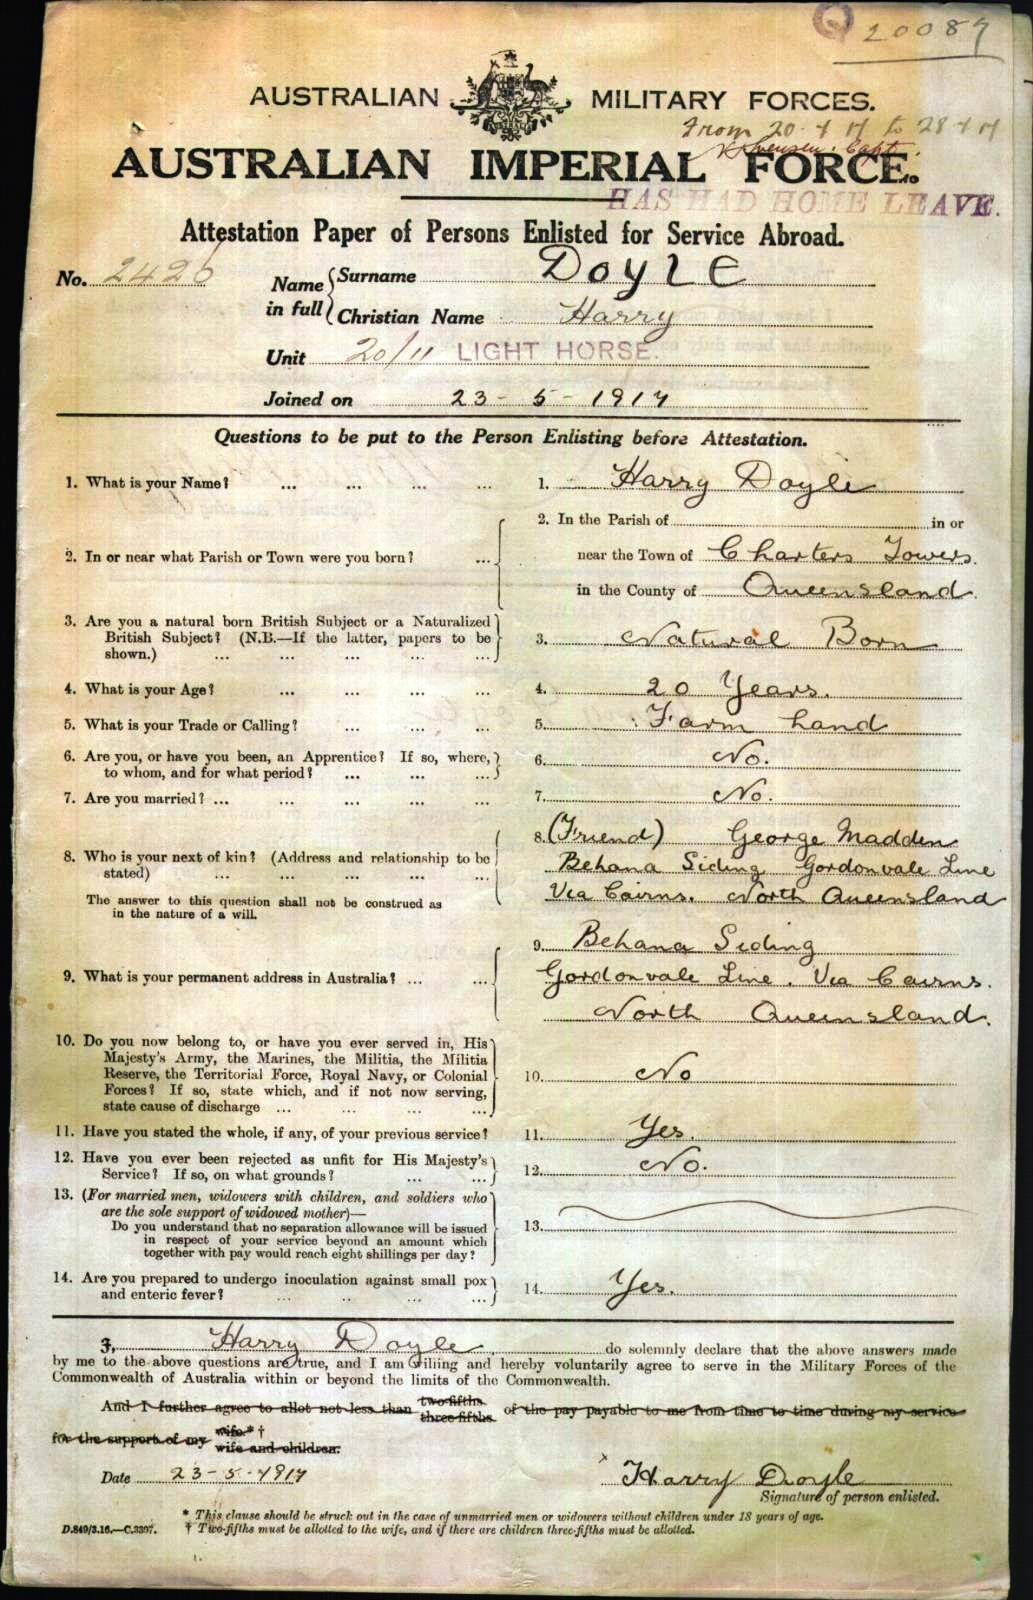 Q 20087
AUSTRALIAN MILITARY FORCES.
From 20-7-17 to 28-7-17
Capt.
AUSTRALIAN IMPERIAL FORCE.
HAS HAD HOME LEAVE.
Attestation Paper of Persons Enlisted for Service Abroad.
No. 2426
Name in full { Surname DOYLE
Christian Name Harry
Unit 20/11 LIGHT HORSE.
Joined on 23-5-1917
Questions to be put to the Person Enlisting before Attestation.
1. What is your Name? ... ... ... ... 1. Harry Doyle
2. In or near what Parish or Town were you born? ... 2. In the Parish of in or
near the Town of Charters Towers.
in the County of Queensland
3. Are you a natural born British Subject or a Naturalized
British Subject? (N.B.—If the latter, papers to be
shown.) ... ... ... ... ... 3. Natural Born
4. What is your Age? ... ... ... ... 4. 20 Years.
5. What is your Trade or Calling? ... ... ... 5. Farm hand
6. Are you, or have you been, an Apprentice? If so, where,
to whom, and for what period? ... ... ... 6. No.
7. Are you married? ... ... ... ... ... 7. No.
8. Who is your next of kin? (Address and relationship to be
stated) ... ... ... ... ...
The answer to this question shall not be construed as
in the nature of a will.
8. (Friend) George Madden
Behana Siding Gordonvale Line
Via Cairns. North Queensland
9. What is your permanent address in Australia? ... ...
9. Behana Siding
Gordonvale Line. Via Cairns.
North Queensland.
10. Do you now belong to, or have you ever served in, His
Majesty's Army, the Marines, the Militia, the Militia
Reserve, the Territorial Force, Royal Navy, or Colonial
Forces? If so, state which, and if not now serving,
state cause of discharge ... ... ... ... 10. No
11. Have you stated the whole, if any, of your previous service? 11. Yes.
12. Have you ever been rejected as unfit for His Majesty's
Service? If so, on what grounds? ... ... 12. No.
13. (For married men, widowers with children, and soldiers who
are the sole support of widowed mother)—
Do you understand that no separation allowance will be issued
in respect of your service beyond an amount which
together with pay would reach eight shillings per day? 13.
14. Are you prepared to undergo inoculation against small pox
and enteric fever? ... ... ... ... 14. Yes.
I, Harry Doyle, do solemnly declare that the above answers made
by me to the above questions are true, and I am willing and hereby voluntarily agree to serve in the Military Forces of the
Commonwealth of Australia within or beyond the limits of the Commonwealth.
And I further agree to allot not less than two-fifths three-fifths of the pay payable to me from time to time during my service
for the support of my wife.* † wife and children.
Date 23-5-1917 Harry Doyle
Signature of person enlisted.
* This clause should be struck out in the case of unmarried men or widowers without children under 18 years of age.
D.849/3.16.—C.3397. † Two-fifths must be allotted to the wife, and if there are children three-fifths must be allotted.